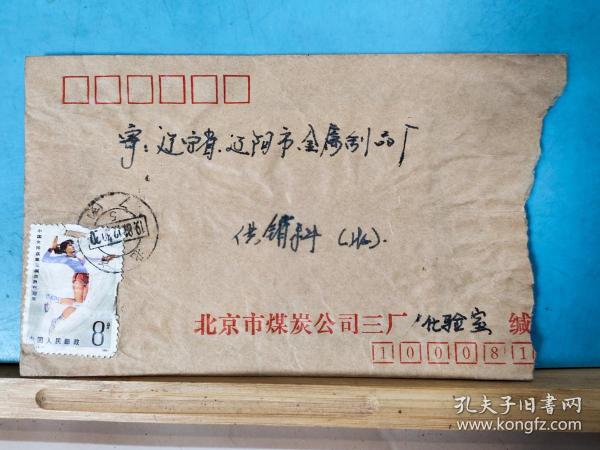 寄：辽宁省.辽阳市.金属制品厂
供销科（收）.
中国女排获第三届世界杯冠军
8分
中国人民邮政
北京市煤炭公司三厂 化验室 缄
100081
孔夫子旧书网
www.kongfz.com